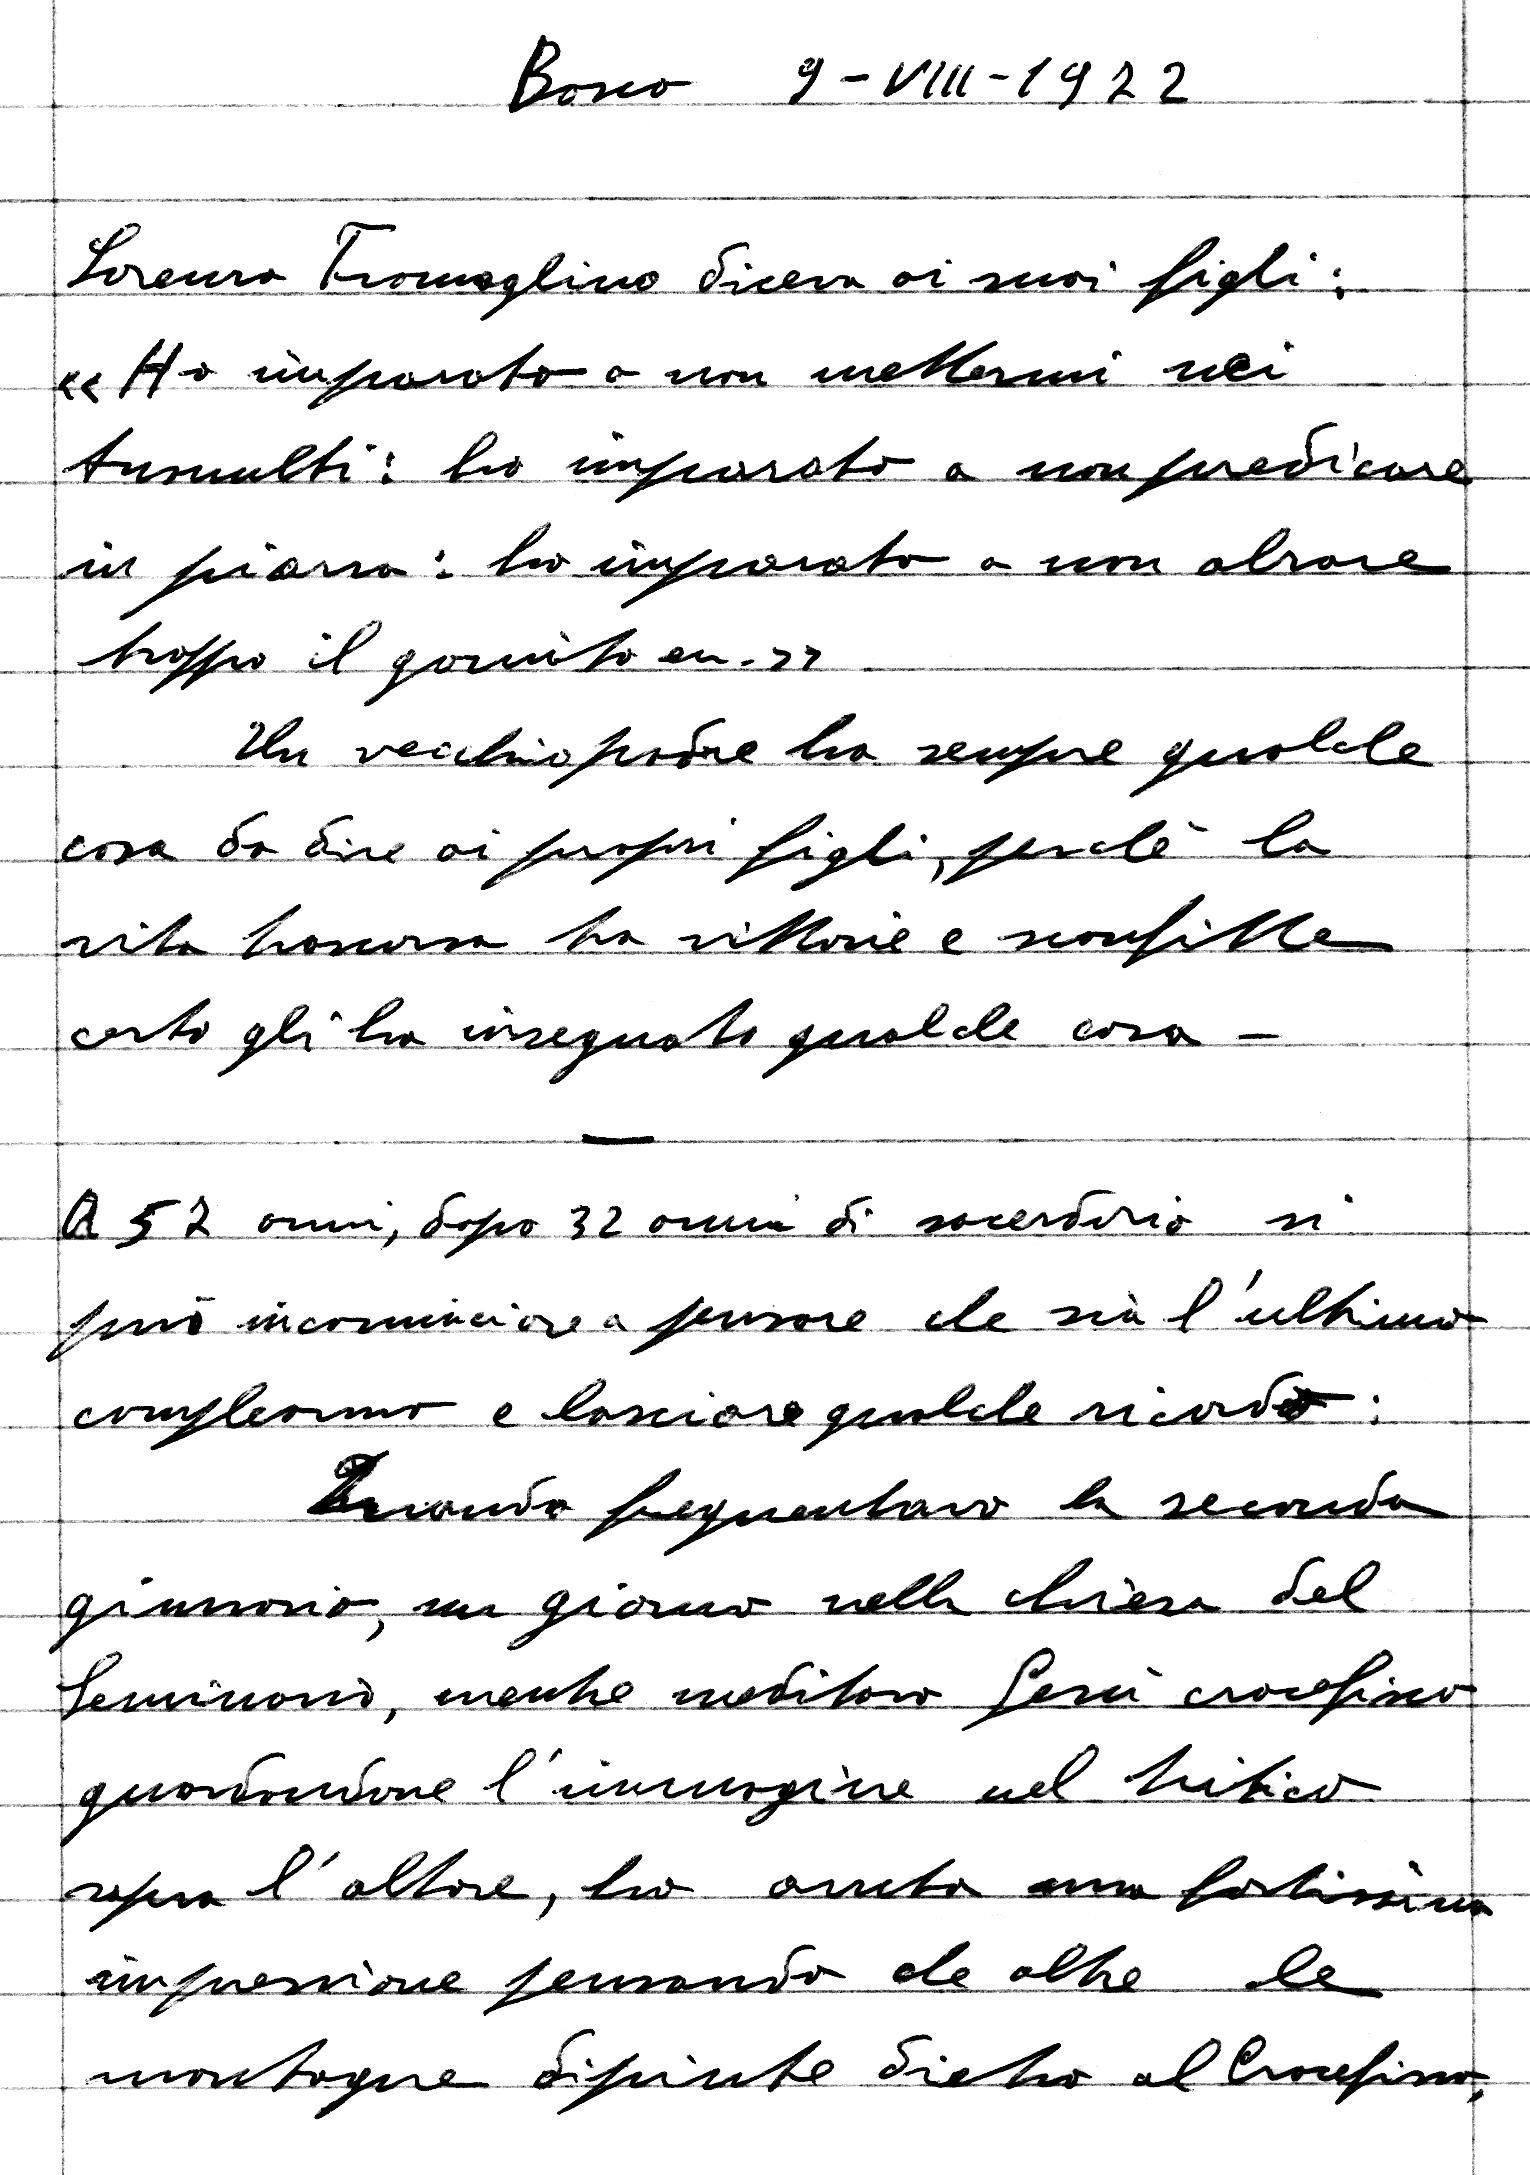 Bosco 9-VIII-1922
Lorenzo Tramaglino diceva ai suoi figli:
«Ho imparato a non mettermi nei
tumulti: ho imparato a non predicare
in piazza: ho imparato a non alzare
troppo il gomito ecc.»
Un vecchio padre ha sempre qualche
cosa da dire ai propri figli, perchè la
vita trascorsa tra vittorie e sconfitte
certo gli ha insegnato qualche cosa –
A 57 anni, dopo 32 anni di sacerdozio si
può incominciare a pensare che sia l'ultimo
compleanno e lasciare qualche ricordo:
Quando frequentavo la seconda
ginnasio, un giorno nella chiesa del
Seminario, mentre meditavo Gesù crocefisso
guardandone l'immagine nel trittico
sopra l'altare, ho avuto una fortissima
impressione pensando che oltre le
montagne dipinte dietro al Crocefisso,